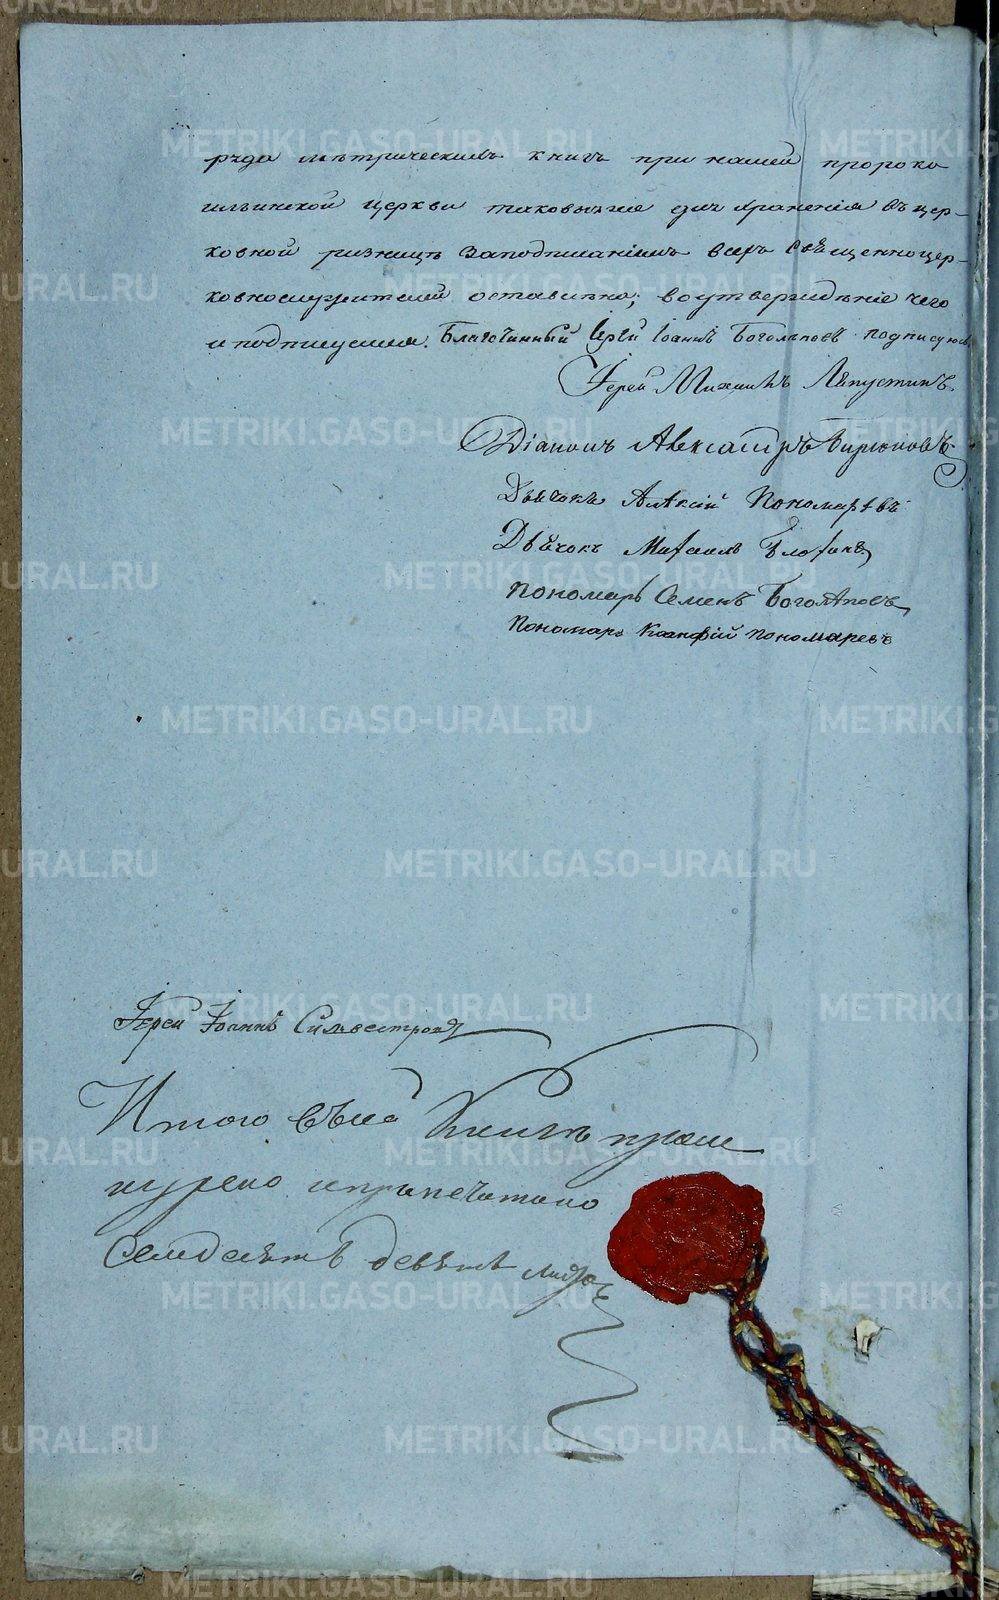 ряда метрическихъ книгъ при нашей пророко
ильинской церкви таковыя же для храненія въ цер-
ковной ризницѣ заподписаніемъ всѣхъ священноцер-
ковнослужителей оставлена; воутвержденіе чего
и подпишемся. Благочинный Іерей Іоаннъ Боголѣповъ подписуюсь
Іерей Михаилъ Ляпустинъ
Діаконъ Александръ Бирюковъ
Дьячокъ Алексій Пономаревъ
Дьячокъ Михаилъ
Пономарь Семенъ Боголѣповъ
Пономарь Пономаревъ
Іерей Іоаннъ Силвестровъ
Итого въсей Книги прош
нурено ипрıпечатано
Семдесятъ девять листовъ
METRIKI.GASO-URAL.RU